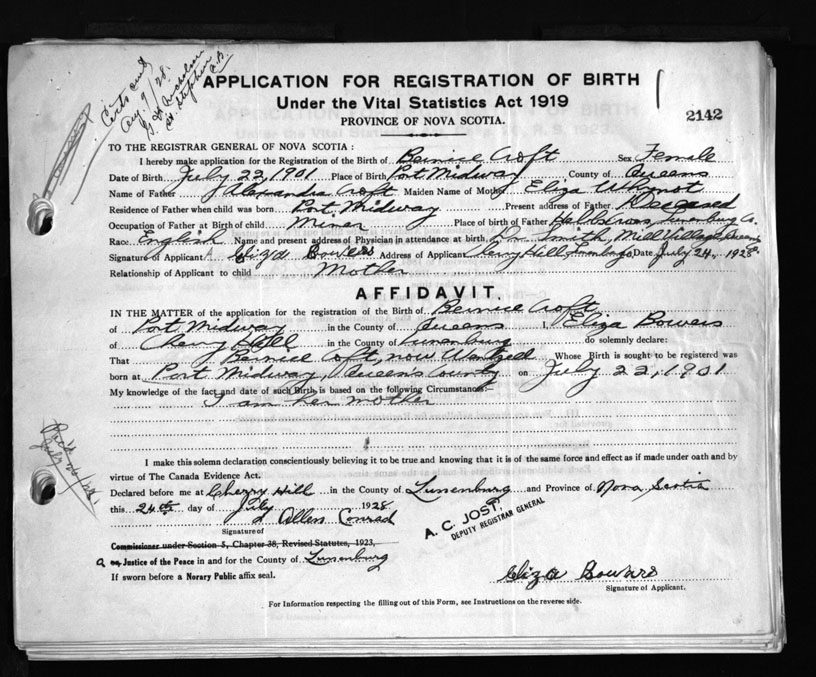 Certs sent
Aug 9/28.
St. Stephen
N.B.
APPLICATION FOR REGISTRATION OF BIRTH
Under the Vital Statistics Act 1919
PROVINCE OF NOVA SCOTIA.
2142
TO THE REGISTRAR GENERAL OF NOVA SCOTIA :
I hereby make application for the Registration of the Birth of Bernice Croft Sex Female
Date of Birth July 22, 1901 Place of Birth Port Midway County of Queens
Name of Father Alexandra Croft Maiden Name of Mother Eliza Whynot
Residence of Father when child was born Port Midway Present address of Father Deceased
Occupation of Father at Birth of child Miner Place of birth of Father Lunenburg Co.
Race English Name and present address of Physician in attendance at birth Dr. Smith, Mill Village, Queens Co.
Signature of Applicant Eliza Bowers Address of Applicant Cherry Hill Lunenburg Date July 24, 1928
Relationship of Applicant to child Mother
AFFIDAVIT.
IN THE MATTER of the application for the registration of the Birth of Bernice Croft
of Port Midway in the County of Queens I, Eliza Bowers
of Cherry Hill in the County of Lunenburg do solemnly declare:
That Bernice Croft, now Wentzell Whose Birth is sought to be registered was
born at Port Midway, Queens County on July 22, 1901
My knowledge of the fact and date of such Birth is based on the following Circumstances:—
I am her mother
I make this solemn declaration conscientiously believing it to be true and knowing that it is of the same force and effect as if made under oath and by
virtue of The Canada Evidence Act.
Declared before me at Cherry Hill in the County of Lunenburg and Province of Nova Scotia
this 24th day of July 1928
Allen Conrad
A. C. JOST,
DEPUTY REGISTRAR GENERAL
Signature of
Commissioner under Section 5, Chapter 38, Revised Statutes, 1923,
a or Justice of the Peace in and for the County of Lunenburg
If sworn before a Norary Public affix seal.
Eliza Bowers
Signature of Applicant.
For Information respecting the filling out of this Form, see Instructions on the reverse side.